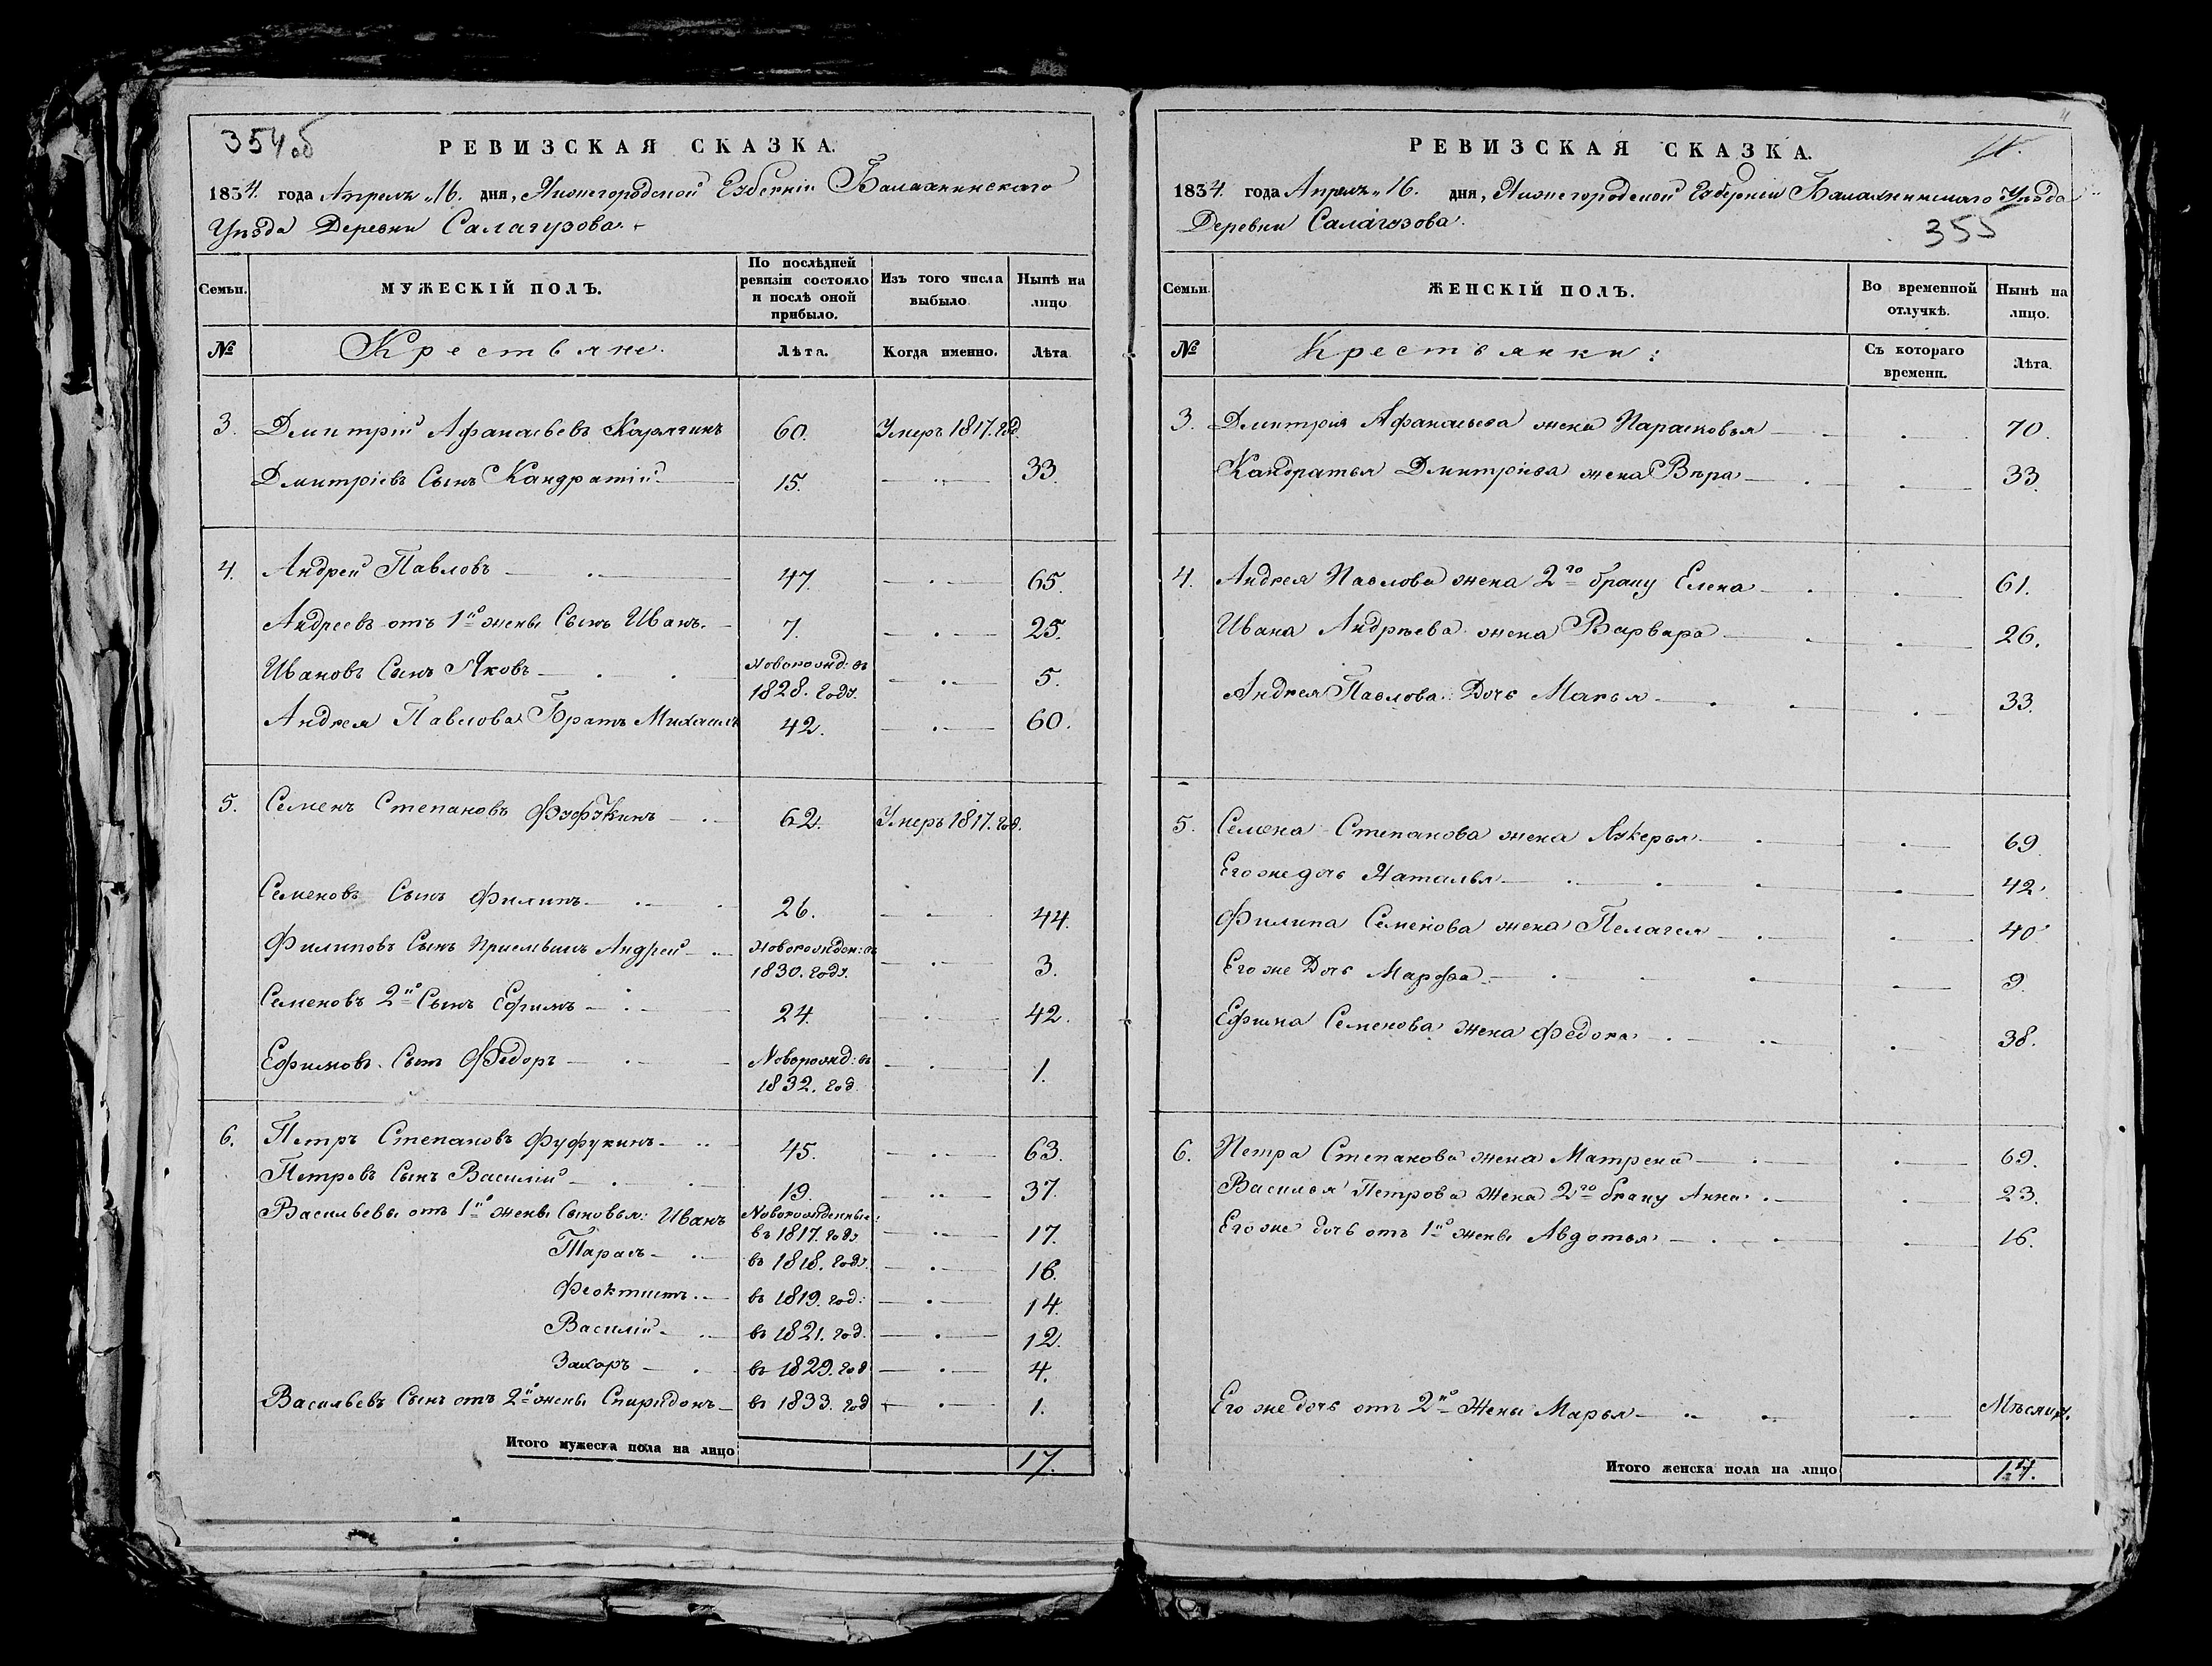 354 об
РЕВИЗСКАЯ СКАЗКА.
1834. года Апреля „16. дня, Нижегородской Губерніи Балахнинскаго
Уѣзда Деревни Салагузова.
Семьи.
МУЖЕСКІЙ ПОЛЪ.
По послѣдней ревизіи состояло и послѣ оной прибыло.
Изъ того числа выбыло
Нынѣ на лицо
№
Крестьяне.
Лѣта.
Когда именно.
Лѣта
3. Дмитрій Афанасьевъ Карягинъ 60. Умеръ 1817. год.
Дмитріевъ Сынъ Кандратій 15. 33.
4. Андрей Павловъ 47. 65.
Андреевъ отъ 1й жены Сынъ Иванъ. 7. 25.
Ивановъ Сынъ Яковъ Новорожд: въ 1828. году. 5.
Андрея Павлова Братъ Михаилъ 42. 60.
5. Семенъ Степановъ Фуфукинъ 62. Умеръ 1817. год.
Семеновъ Сынъ Филипъ 26. 44.
Филиповъ Сынъ Приемышъ Андрей Новорожден: въ 1830. году. 3.
Семеновъ 2й Сынъ Ефимъ 24. 42.
Ефимовъ Сынъ Федоръ Новорожд: въ 1832. год. 1.
6. Петръ Степановъ Фуфукинъ 45. 63.
Петровъ Сынъ Василій 19. 37.
Васильевы отъ 1й жены Сыновья: Иванъ Новорожденные: въ 1817. году 17.
Тарасъ въ 1818. году. 16.
Феоктистъ въ 1819. год: 14.
Василій въ 1821. год. 12.
Захаръ въ 1829. год 4.
Васильевъ Сынъ отъ 2й жены Спиридонъ въ 1833. год 1.
Итого мужеска пола на лицо 17.
РЕВИЗСКАЯ СКАЗКА.
1834. года Апреля „16. дня, Нижегородской Губерніи Балахнинскаго Уѣзда
Деревни Салагузова.
355
Семьи.
ЖЕНСКІЙ ПОЛЪ.
Во временной отлучкѣ.
Нынѣ на лицо.
№
Крестьянки:
Съ котораго времени.
Лѣта.
3. Дмитрия Афанасьева жена Парасковья 70.
Кандратья Дмитріева жена Вѣра 33.
4. Андрея Павлова жена 2го браку Елена 61.
Ивана Андрѣева жена Варвара 26.
Андрея Павлова Дочь Марья 33.
5. Семена Степанова жена Лукерья 69.
Его же дочь Наталья 42.
Филипа Семенова жена Пелагея 40.
Его же Дочь Марфа 9.
Ефима Семенова жена Федора 38.
6. Петра Степанова жена Матрена 69.
Василья Петрова жена 2го браку Анна 23.
Его же дочь отъ 1й жены Авдотья 16.
Его же дочь отъ 2й Жены Марья
Итого женска пола на лицо 14.